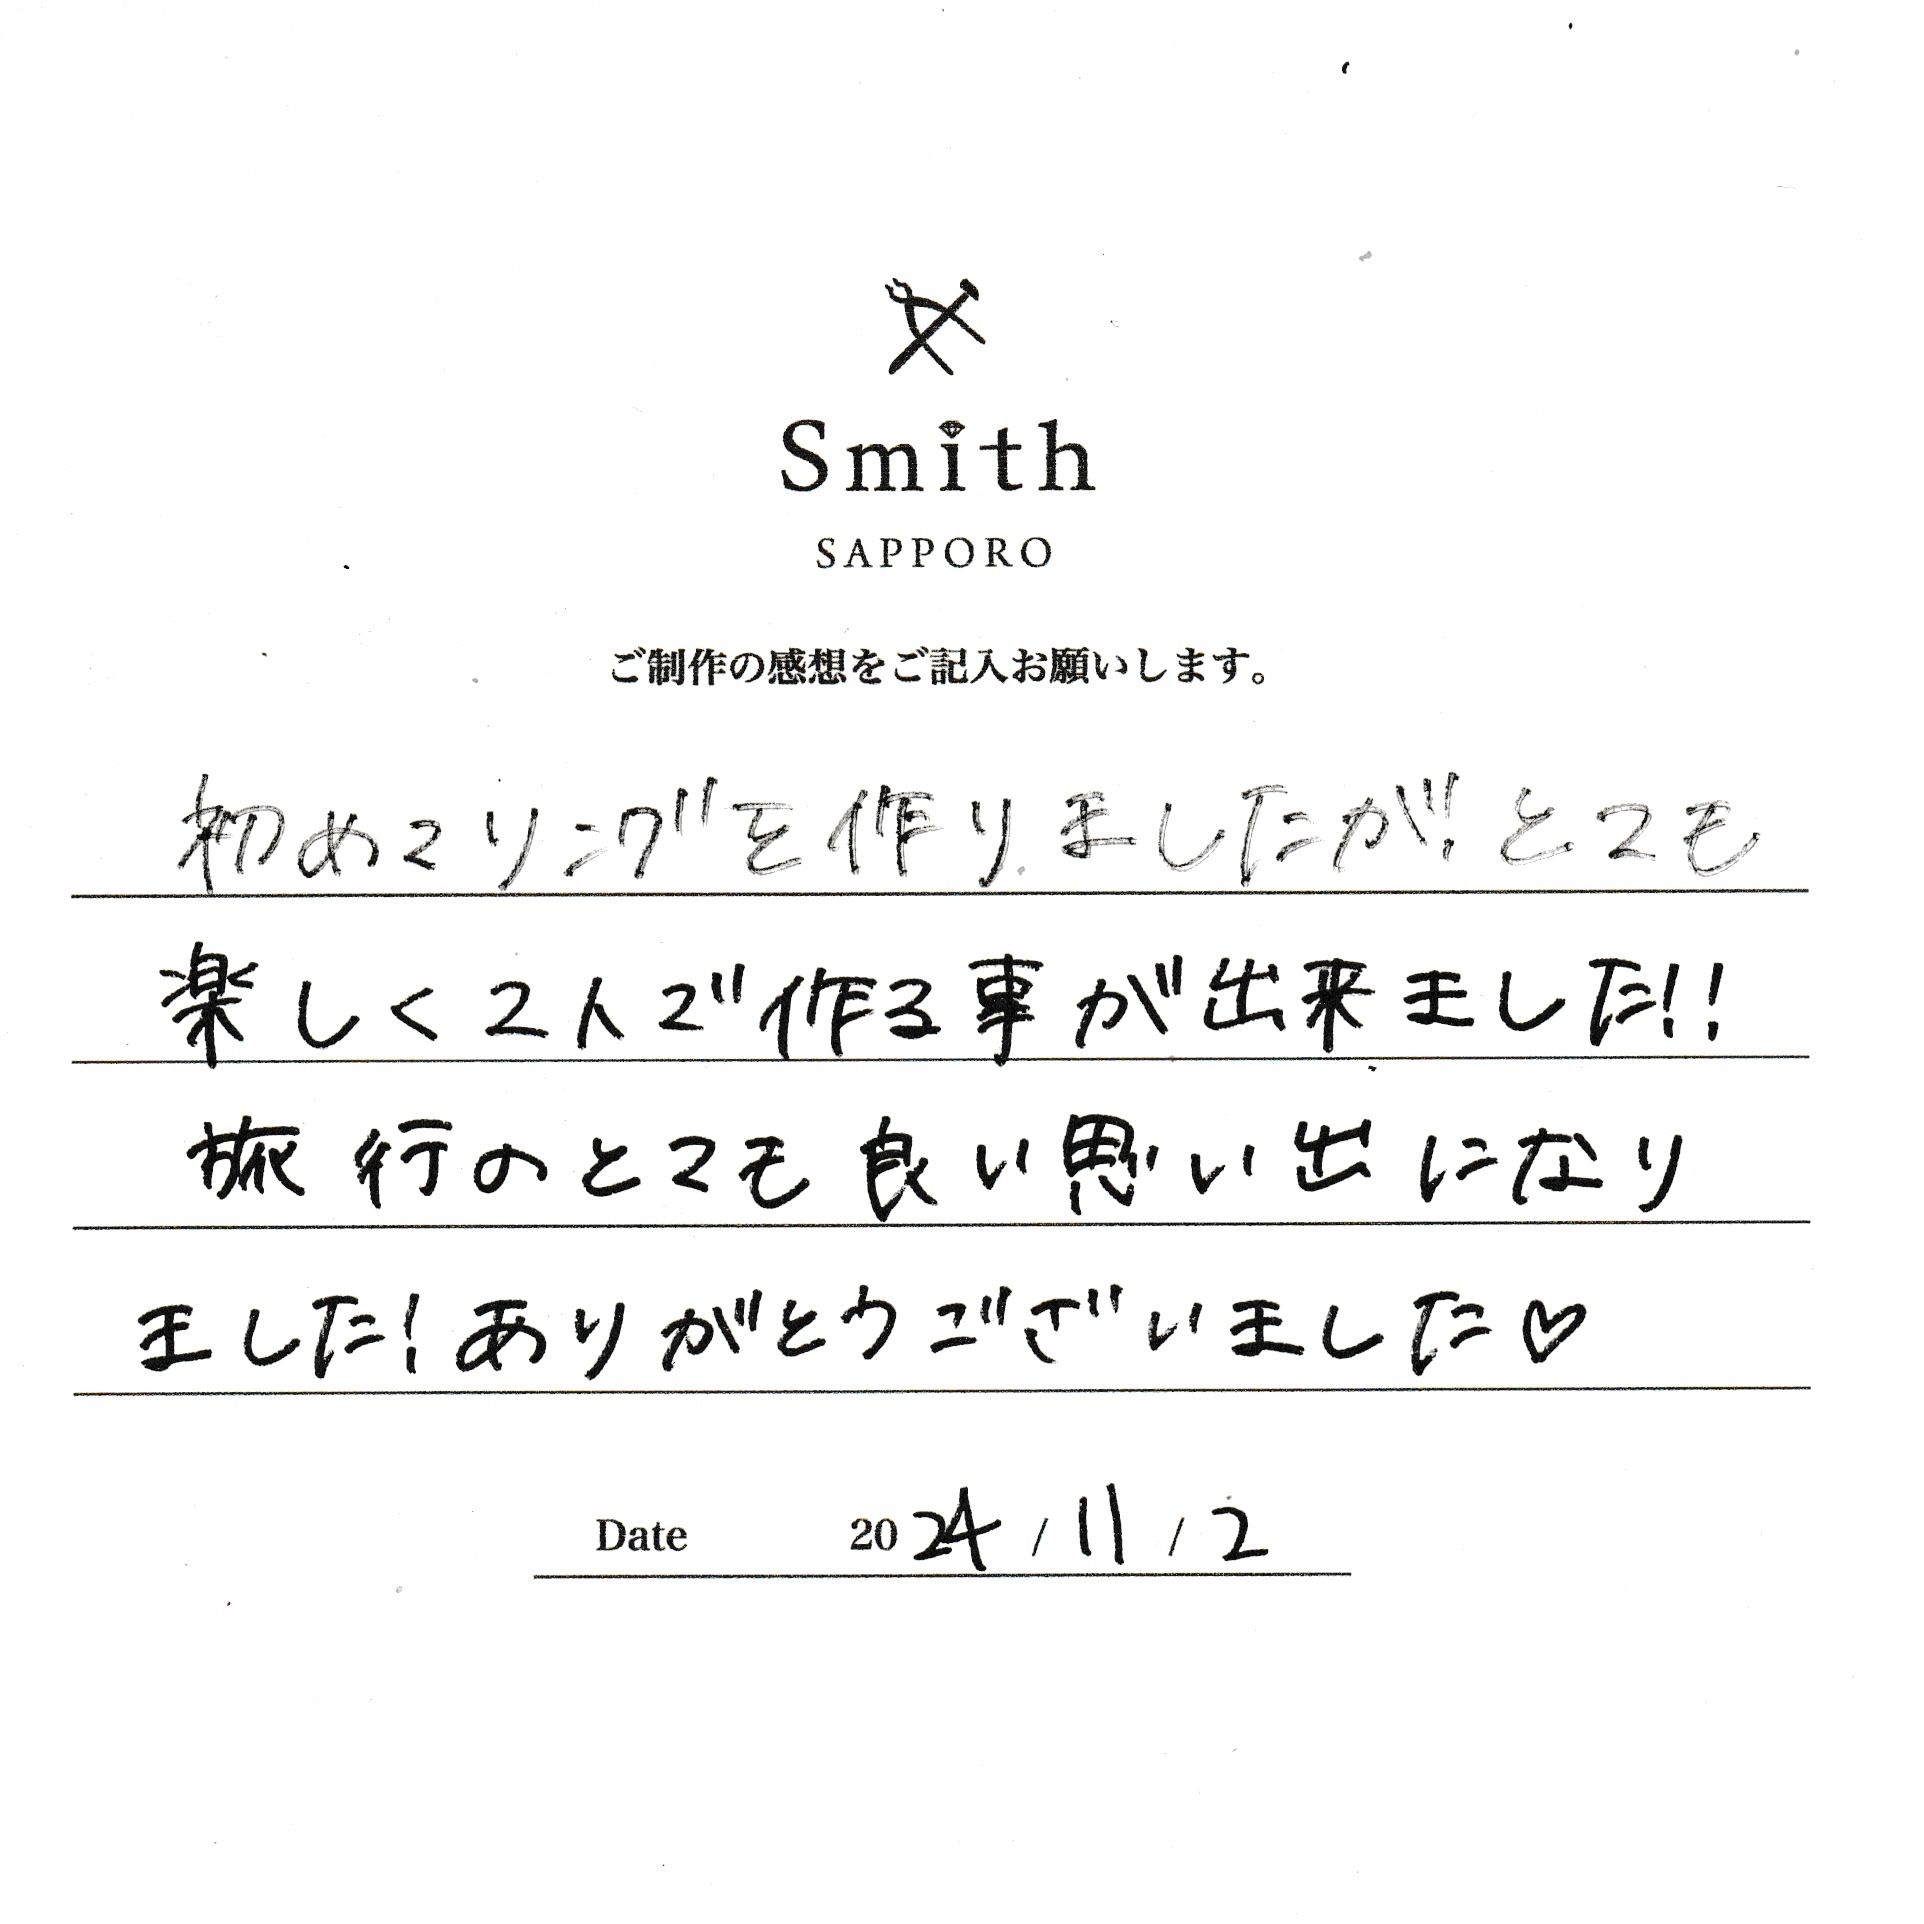 Smith
SAPPORO
ご制作の感想をご記入お願いします。
初めてリングを作りましたが、とても
楽しく2人で作る事が出来ました!!
旅行のとても良い思い出になり
ました!ありがとうございました♡
Date 2024 / 11 / 2